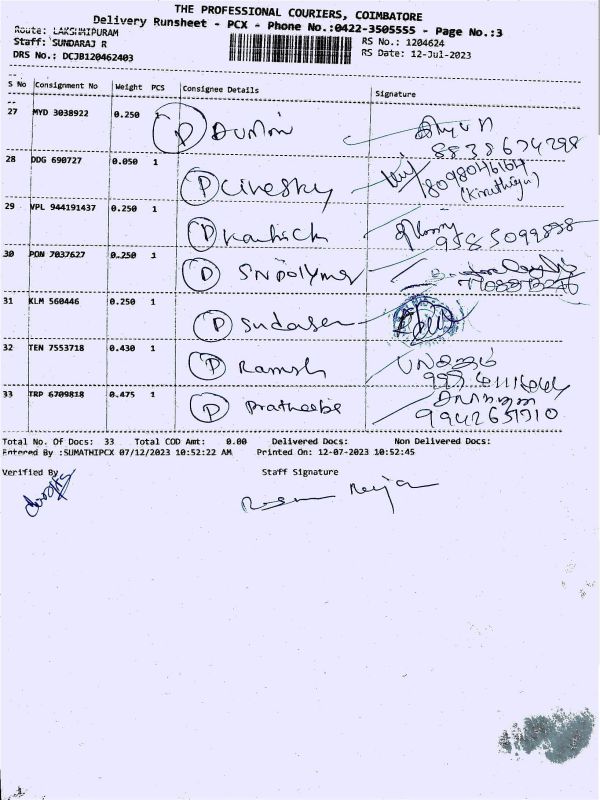 THE PROFESSIONAL COURIERS, COIMBATORE
Delivery Runsheet - PCX - Phone No.:0422-3505555 - Page No.:3
Route: LAKSHMIPURAM
RS No.: 1204624
Staff: SUNDARAJ R
RS Date: 12-Jul-2023
DRS No.: DCJB120462403
S No Consignment No Weight PCS Consignee Details Signature
27 MYD 3038922 0.250 1 D
28 DDG 690727 0.050 1 D Cinesky
8098046164
29 VPL 944191437 0.250 1 D Karthick
30 PON 7037627 0.250 1 D SN polymer
31 KLM 560446 0.250 1 D Sudarsen
32 TEN 7553718 0.430 1 D Ramesh
33 TRP 6709818 0.475 1 D Pratheeba
Total No. Of Docs: 33 Total COD Amt: 0.00 Delivered Docs: Non Delivered Docs:
Entered By :SUMATHIPCX 07/12/2023 10:52:22 AM Printed On: 12-07-2023 10:52:45
Verified By Staff Signature